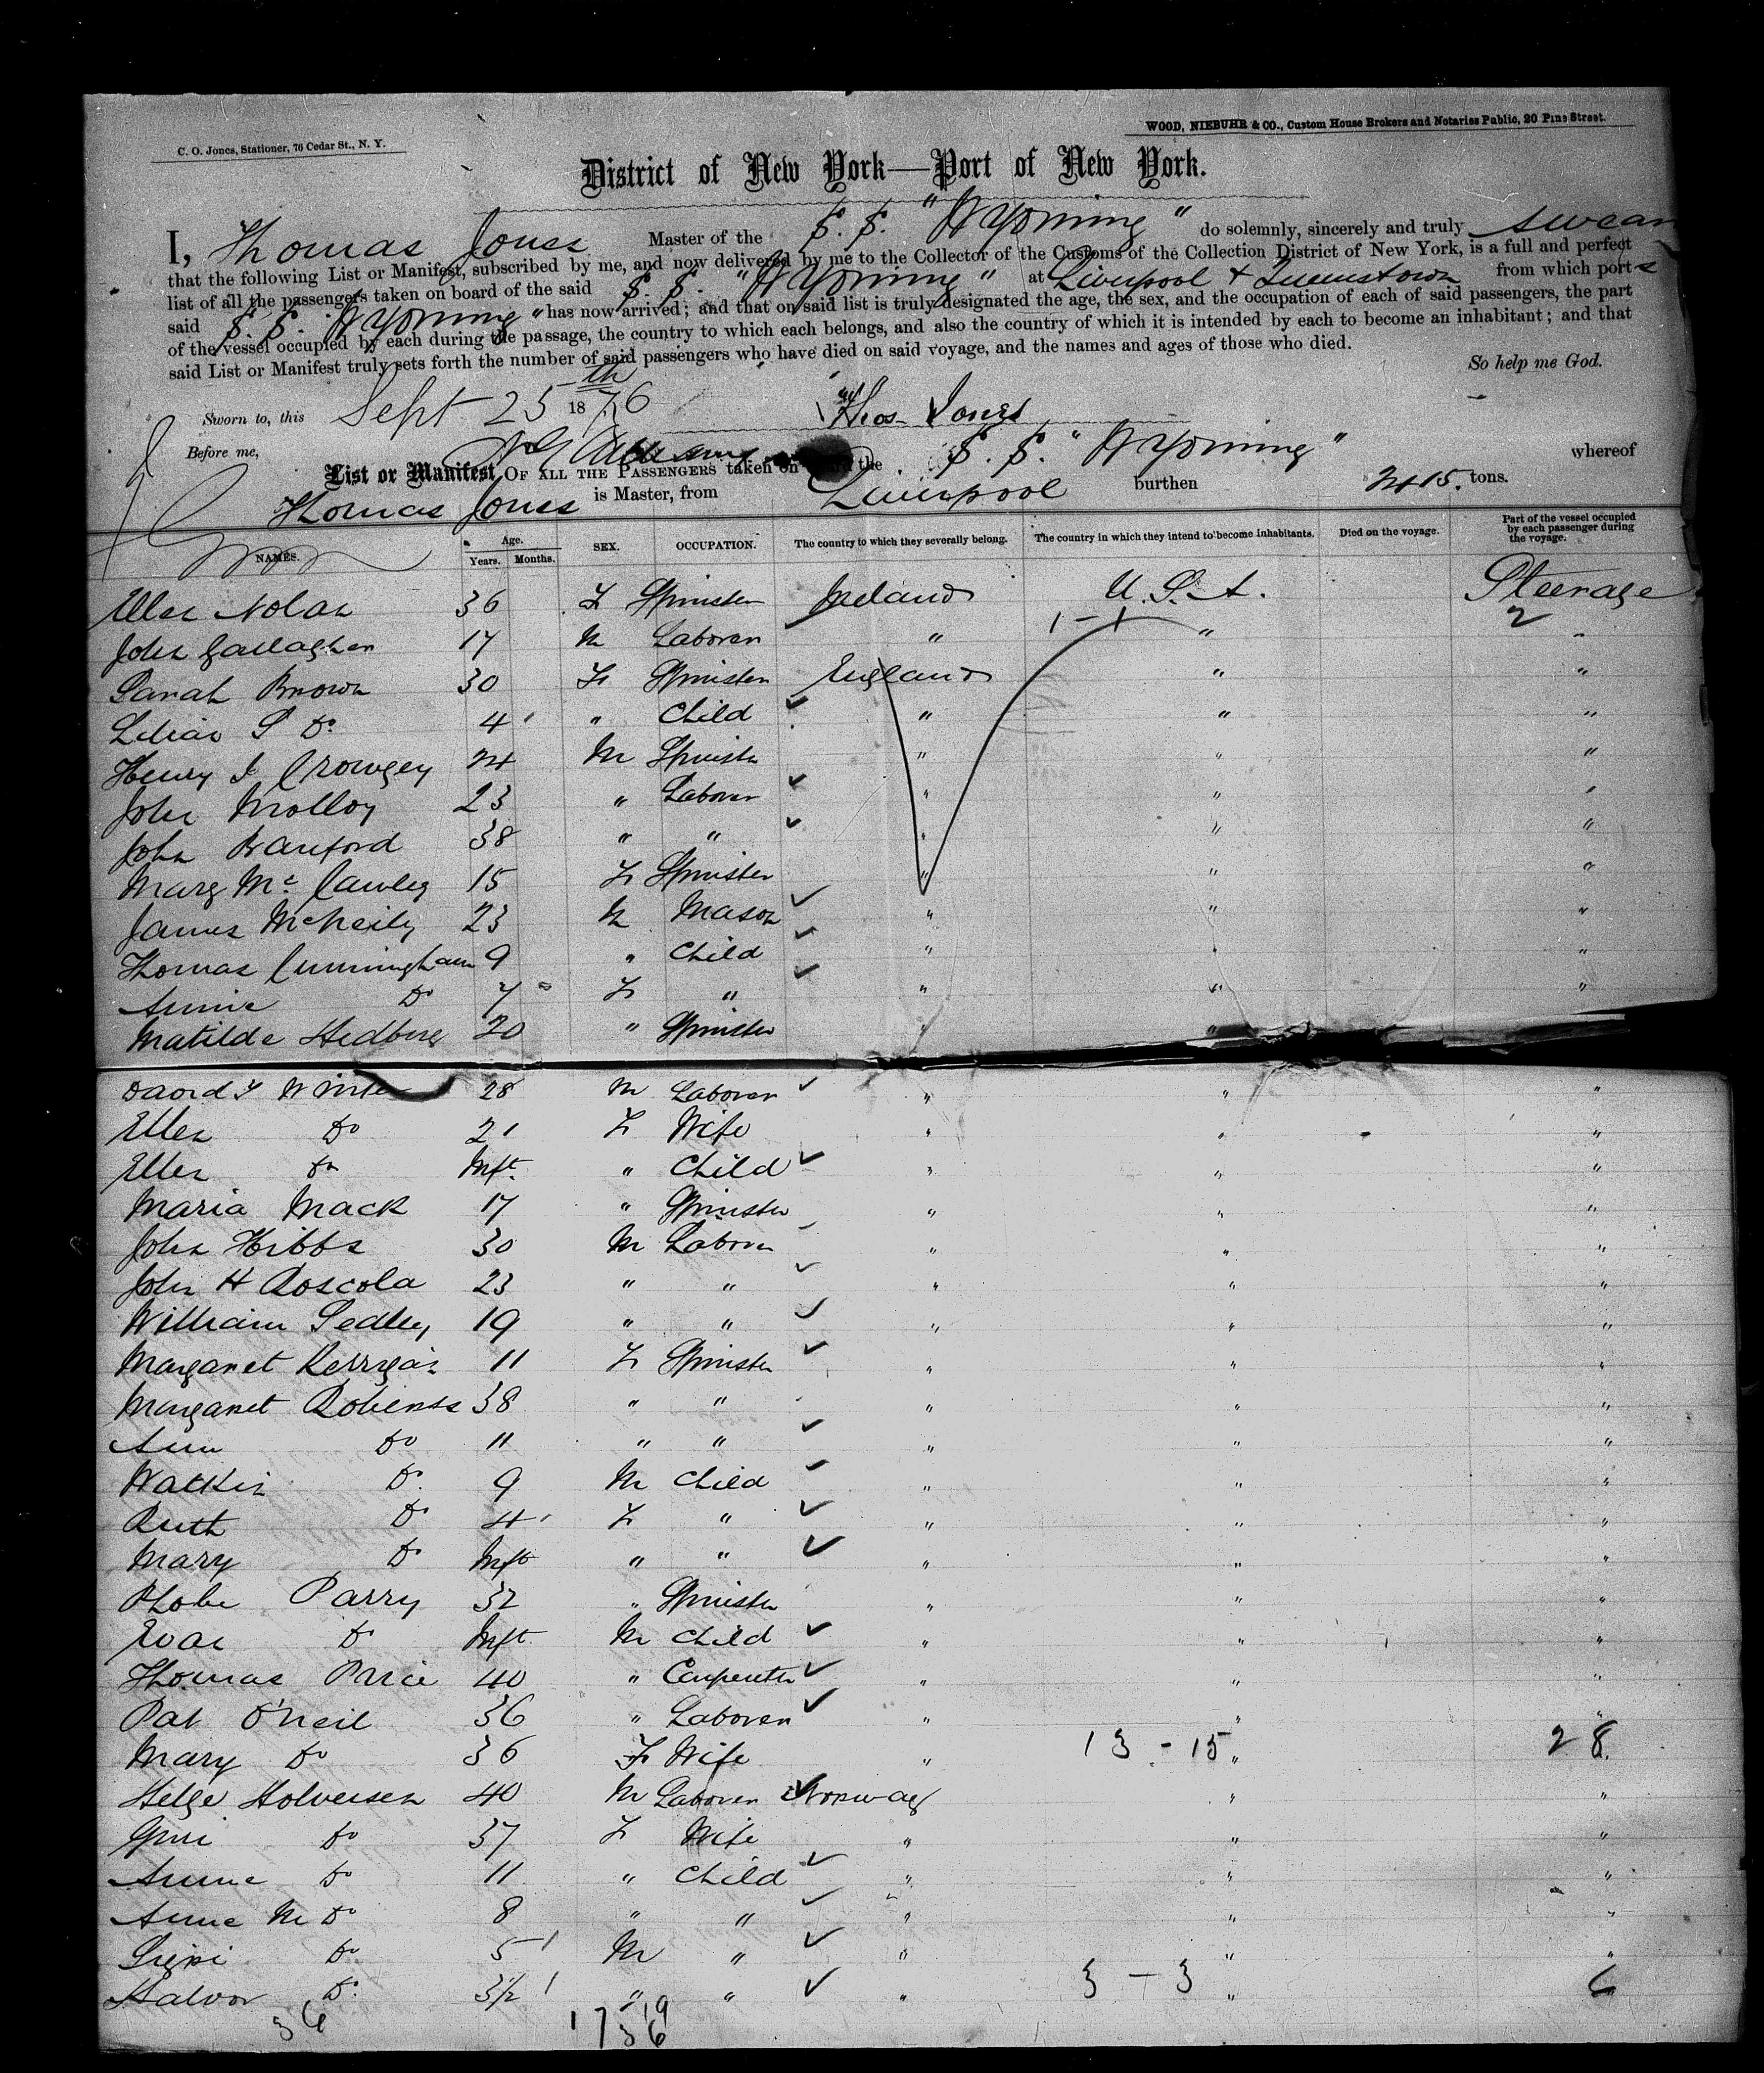 WOOD, NIEBUHR & CO., Custom House Brokers and Notaries Public, 20 Pine Street.
C. O. Jones, Stationer, 76 Cedar St., N. Y.
District of New York—Port of New York.
I, Thomas Jones Master of the S. S. "Wyoming" do solemnly, sincerely and truly swear
that the following List or Manifest, subscribed by me, and now delivered by me to the Collector of the Customs of the Collection District of New York, is a full and perfect
list of all the passengers taken on board of the said S. S. "Wyoming" at Liverpool & Queenstown from which ports
said S. S. "Wyoming" has now arrived; and that on said list is truly designated the age, the sex, and the occupation of each of said passengers, the part
of the vessel occupied by each during the passage, the country to which each belongs, and also the country of which it is intended by each to become an inhabitant; and that
said List or Manifest truly sets forth the number of said passengers who have died on said voyage, and the names and ages of those who died.
So help me God.
Sworn to, this Sept 25th 1876 Thos Jones
Before me,
List or Manifest OF ALL THE PASSENGERS taken on board the S. S. "Wyoming" whereof
Thomas Jones is Master, from Liverpool burthen 2415. tons.
NAMES. Age. Years. Months. SEX. OCCUPATION. The country to which they severally belong. The country in which they intend to become inhabitants. Died on the voyage. Part of the vessel occupied by each passenger during the voyage.
Ellen Nolan 36 F Spinster Ireland U.S.A. Steerage
1 - 1 2
John Gallagher 17 M Laborer " " "
Sarah Brown 30 F Spinster England " "
Lilian S Do 4 " Child " " "
Henry J Crowgey 24 M Spinster " " "
John Molloy 23 " Laborer " " "
John Branford 38 " " " " "
Marg Mc Cawley 15 F Spinster " " "
James McNeily 23 M Mason " " "
Thomas Cunningham 9 " Child " " "
Annie Do 7 F " " " "
Matilda Hedburg 20 " Spinster " "
David J White 28 M Laborer " " "
Ellen Do 21 F Wife " " "
Ellen Do Inft. " Child " " "
Maria Mack 17 " Spinster " " "
John Hibbs 30 M Laborer " " "
John H Roscola 23 " " " " "
William Sedley 19 " " " " "
Margaret Kerrigan 11 F Spinster " " "
Margaret Roberts 38 " " " " "
Ann Do 11 " " " " "
Watkin Do 9 M Child " " "
Ruth Do 4 F " " " "
Mary Do Inft " " " " "
Phobe Parry 32 " Spinster " " "
Evan Do Inft M Child " " "
Thomas Price 40 " Carpenter " " "
Pat O'Neil 36 " Laborer " " "
Mary Do 36 F Wife " 13 - 15 " 28.
Helge Holversen 40 M Laborer Norway " "
Guri Do 37 F Wife " " "
Anne Do 11 " Child " " "
Anne M Do 8 " " " " "
Do 5 M " " " "
Halvor Do 3/2 " " " 3 - 3 " 6
36 17 19
36